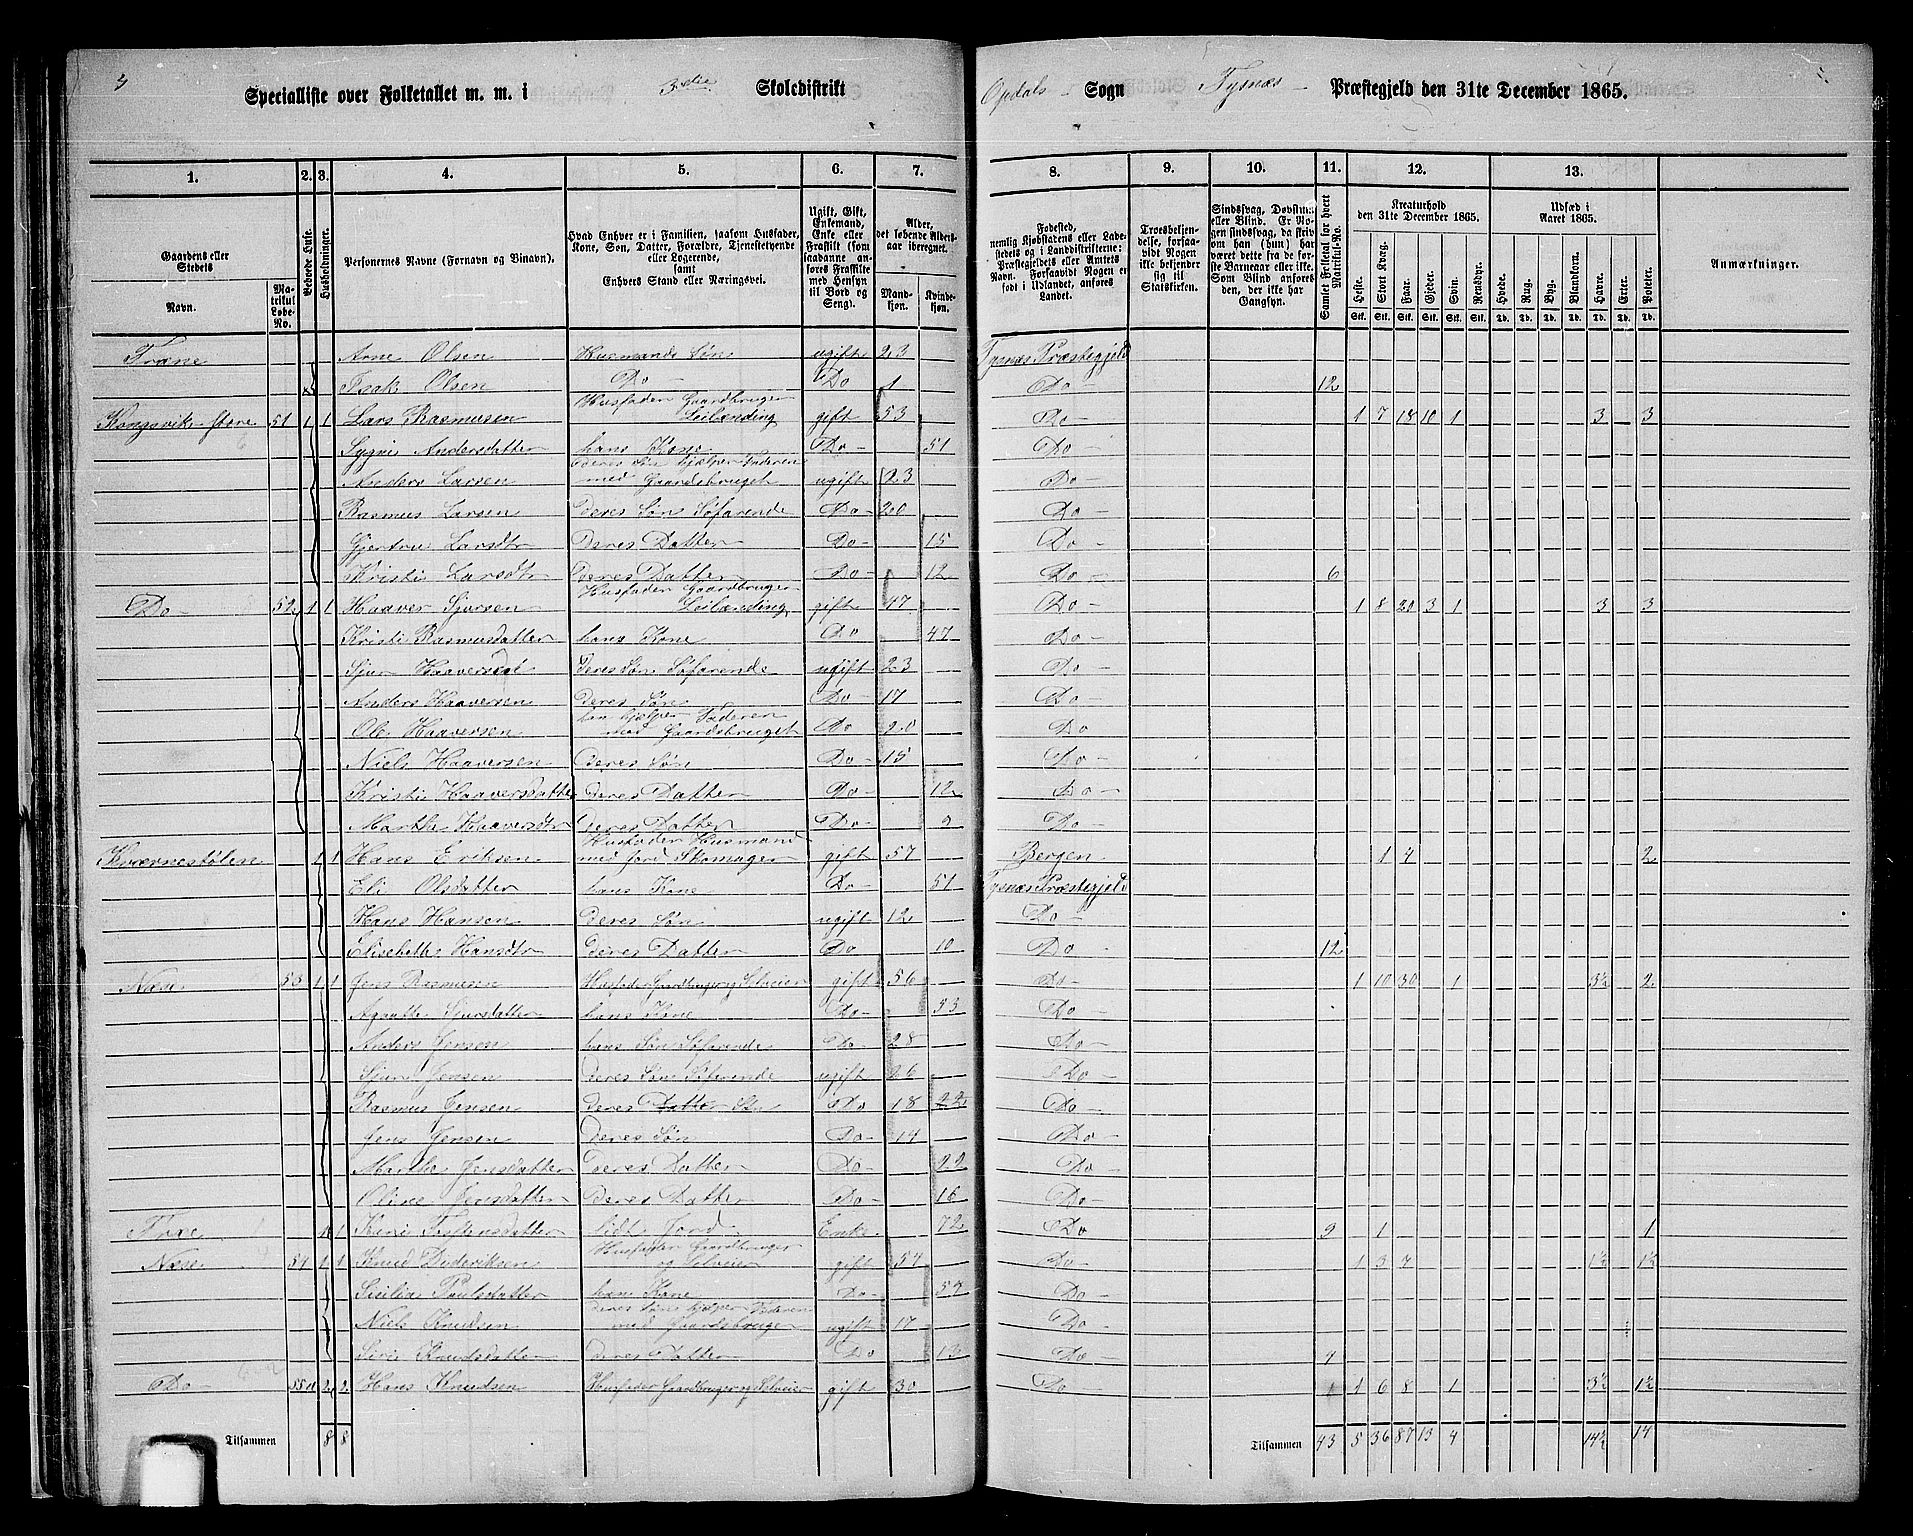 4
Specialliste over Folketallet m. m. i 3die Skoledistrikt Opdals Sogn Tysnæs Præstegjeld den 31te December 1865.
1. 2. 3. 4. 5. 6. 7. 8. 9. 10. 11. 12. 13.
Gaardens eller Stedets Navn. Matrikul Løbe-No.
Beboede Huse.
Husholdninger.
Personernes Navne (Fornavn og Binavn).
Hvad Enhver er i Familien, saasom Husfader, Kone, Søn, Datter, Forældre, Tjenestetyende eller Logerende, samt Enhvers Stand eller Næringsvei.
Ugift, Gift, Enkemand, Enke eller Fraskilt (som saadanne anføres Fraskilte med Hensyn til Bord og Seng).
Alder, det løbende Aldersaar iberegnet. Mandkjøn. Kvindekjøn.
Fødested, nemlig Kjøbstadens eller Ladestedets og i Landdistrikterne: Præstegjeldets eller Amtets Navn. Forsaavidt Nogen er født i Udlandet, anføres Landet.
Troesbekjendelse, forsaavidt Nogen ikke bekjender sig til Statskirken.
Sindssvag, Døvstum eller Blind. Er Nogen sindssvag, da skriv om han (hun) har været dette fra de første Barneaar eller ikke. Som Blind anføres den, der ikke har Gangsyn.
Samlet Folketal for hvert Matrikul-No.
Kreaturhold den 31te December 1865. Heste. Stort Kvæg. Faar. Gjeder. Svin. Rensdyr.
Udsæd i Aaret 1865. Hvede. Rug. Byg. Blandkorn. Havre. Erter. Poteter.
Anmærkninger.
Arne Olsen Husmands Søn ugift 23 Tysnæs Præstegjeld
Isak Olsen Do Do 1 Do 12
Kongsvik store 51 1 1 Lars Rasmusen Husfader Gaardbruger Leilænding gift 53 Do 1 7 18 10 1 3 3
Andersdatter hans Kone Do 51 Do
Anders Larsen deres Søn hjælper Faderen med Gaardsbruget ugift 23 Do
Rasmus Larsen deres Søn Søfarende Do 20 Do
Gjertru Larsdtr deres Datter Do 15 Do
Kristi Larsdtr deres Datter Do 12 Do 6
Do 52 1 1 Haaver Sjursen Husfader Gaardbruger Leilænding gift 47 Do 1 8 20 3 1 3 3
Kristi Rasmusdatter hans Kone Do 47 Do
Sjur Haaversen deres Søn Søfarende ugift 23 Do
Anders Haaversen deres Søn Do 17 Do
Ole Haaversen han hjælper Faderen med Gaardsbruget Do 20 Do
Niels Haaversen deres Søn Do 15 Do
Kristi Haaversdatter deres Datter Do 12 Do
Marthe Haaversdtr deres Datter Do 9 Do
Kværnestølen 1 1 Hans Eriksen Husfader Husmand med Jord Skomager gift 57 Bergen 1 4 2
Eli Olsdatter hans Kone Do 51 Tysnæs Præstegjeld
Hans Hansen deres Søn ugift 12 Do
Elisebethe Hansdtr deres Datter Do 10 Do 12
Næse 53 1 1 Jens Rasmusen Husfader Gaardbruger og Selveier gift 56 Do 1 10 30 1 3½ 2
Agaathe Sjursdatter hans Kone Do 53 Do
Anders Jensen hans Søn Søfarende Do 28 Do
Sjur Jensen deres Søn Søfarende ugift 26 Do
Rasmus Jensen deres Datter Søn Do 18 22 Do
Jens Jensen deres Søn Do 14 Do
Marthe Jensdatter deres Datter Do 22 Do
Oline Jensdatter deres Datter Do 16 Do
1 1 Kari lidt Jord Enke 72 Do 9 1 1
Næse 54 1 1 Knud Dideriksen Husfader Gaardbruger og Selveier gift 54 Do 1 3 7 1½ 1½
Sisilia Paulsdatter hans Kone Do 54 Do
Niels Knudsen deres Søn hjælper Faderen med Gaardsbruger ugift 17 Do
Siri Knudsdatter deres Datter Do 13 Do 4
Do 55a 2 2 Hans Knudsen Husfader Gaardbruger og Selveier gift 30 Do 1 6 8 1 3½ 1½
Tilsammen 8 8 Tilsammen 43 5 36 87 13 4 14½ 14